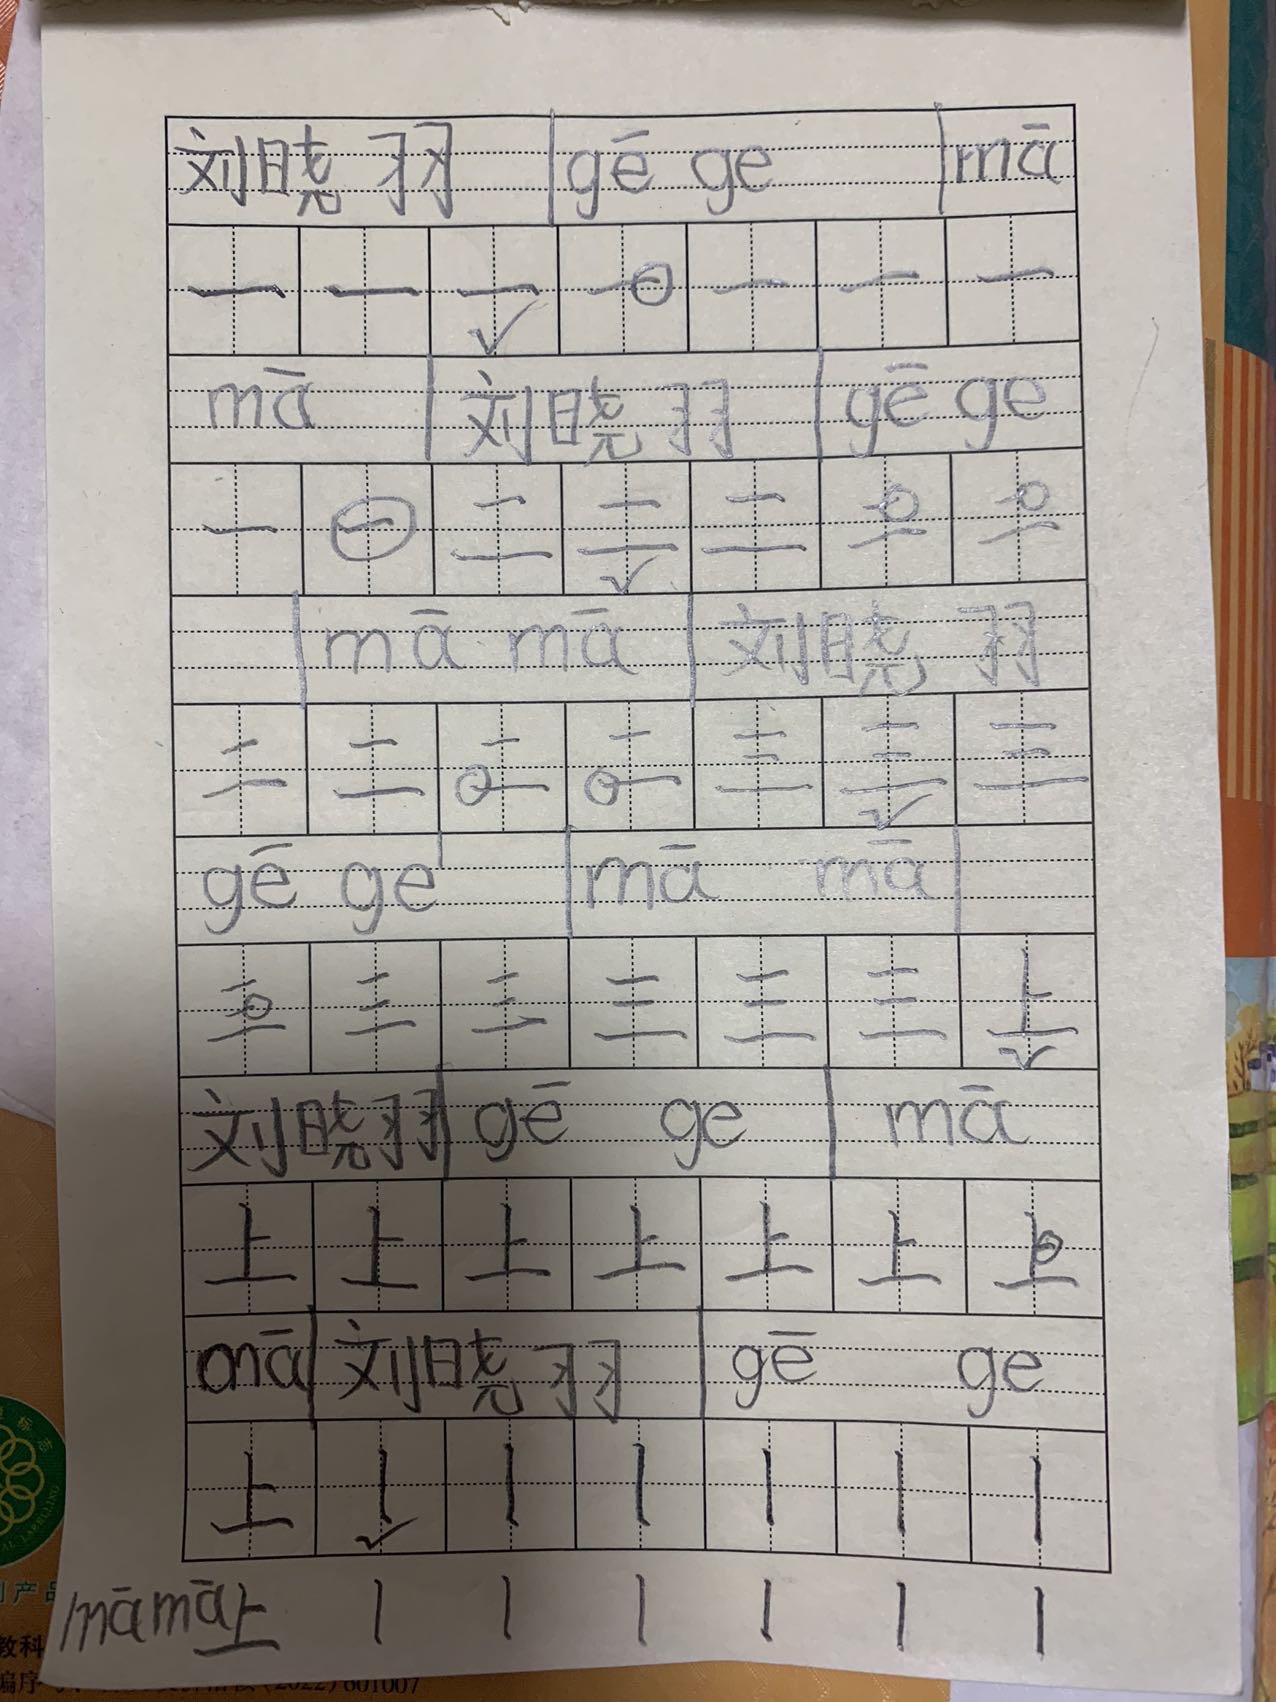 刘晓羽 gē ge mā
一 一 一 一 一 一 一
mā 刘晓羽 gē ge
一 一 二 二 二 二 二
mā mā 刘晓羽
二 二 二 二 三 三 三
gē ge mā mā
三 三 三 三 三 三 上
刘晓羽 gē ge mā
上 上 上 上 上 上 上
mā 刘晓羽 gē ge
上 丨 丨 丨 丨 丨 丨
māmā上 丨 丨 丨 丨 丨 丨
产品
教科
(2022) 601007